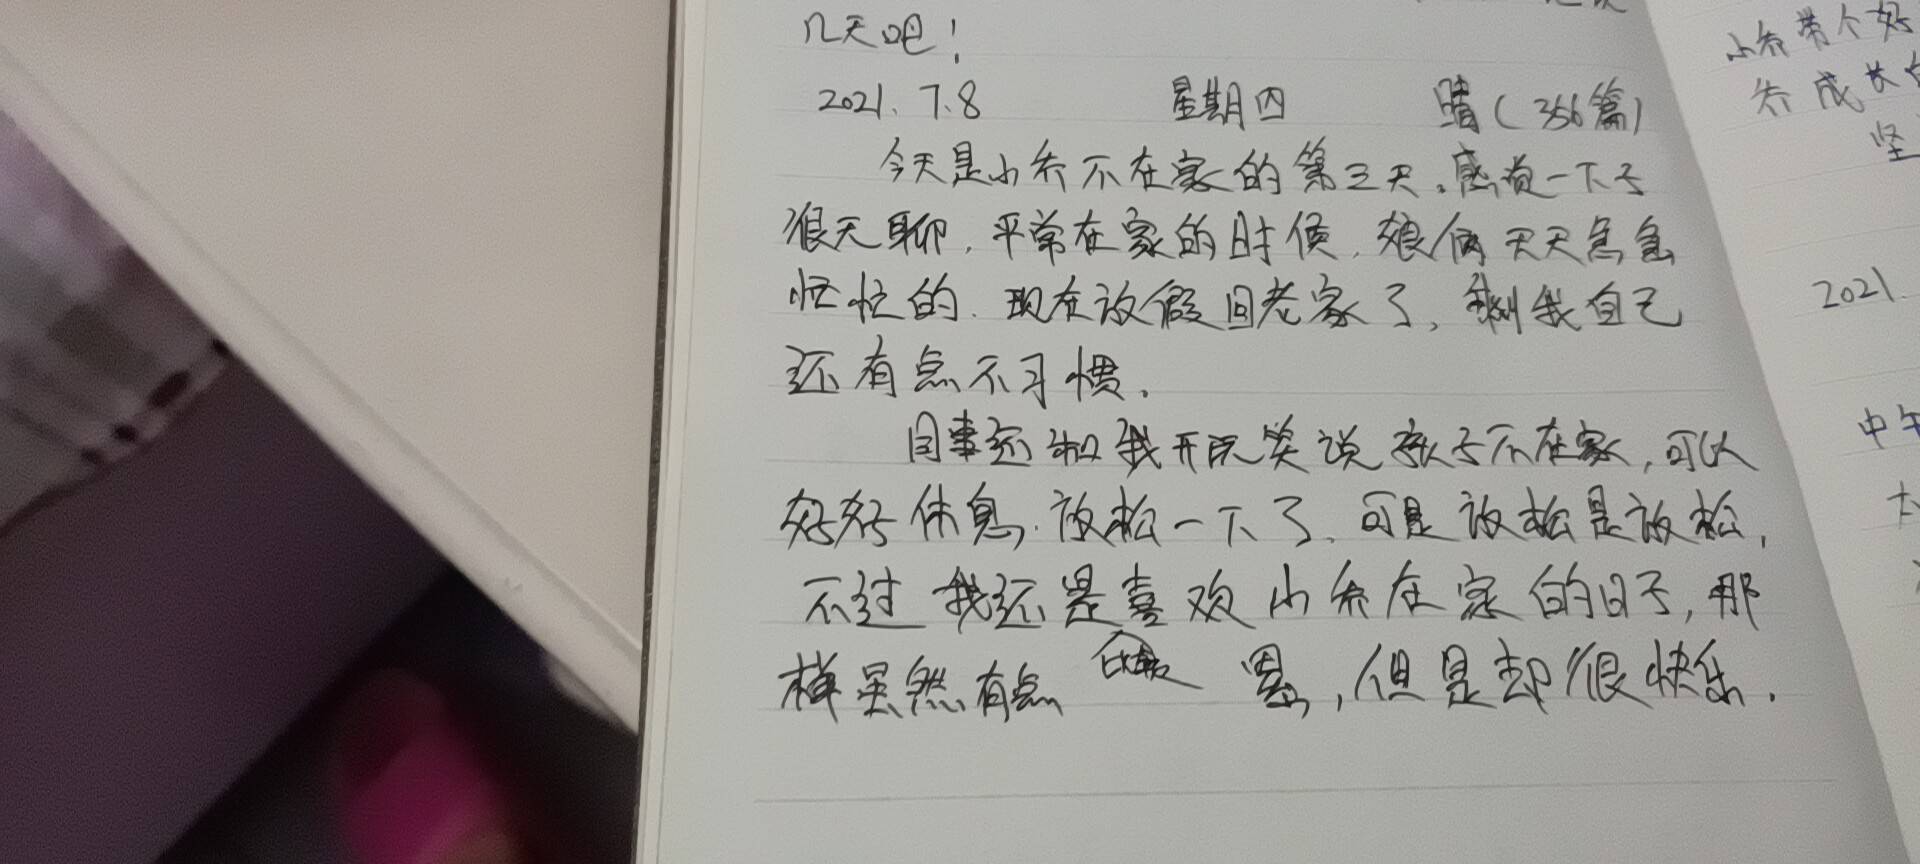 几天吧！
2021.7.8 星期四 晴（356篇）
今天是小乔不在家的第三天。感觉一下子
很无聊，平常在家的时候，娘俩天天急急
忙忙的，现在放假回老家了，剩我自己
还有点不习惯。
同事还和我开玩笑说孩子不在家，可以
好好休息，放松一下了，可是放松是放松，
不过我还是喜欢小乔在家的日子，那
样虽然有点 累，但是却很快乐。
小乔带个好
乔成长
坚
2021.
中午